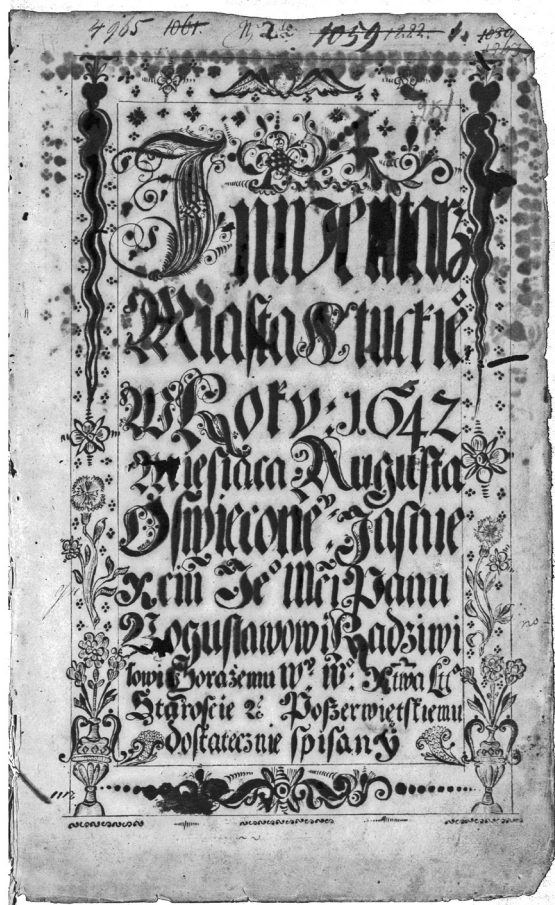 4965 1061. N 2 1059 1222. 1. 1039
Inwentarz
Miasta Słuckie°
W Roku: 1642
Miesiaca Augusta
Oświecone: Jaśnie
Xcm̃ Je° Mći Panu
Bogusławowi Radziwi
łowi Chorążemu W° X°: Xtwa Litt°
Staroście &c Poszerwiętskiemu
dostatecznie spisany